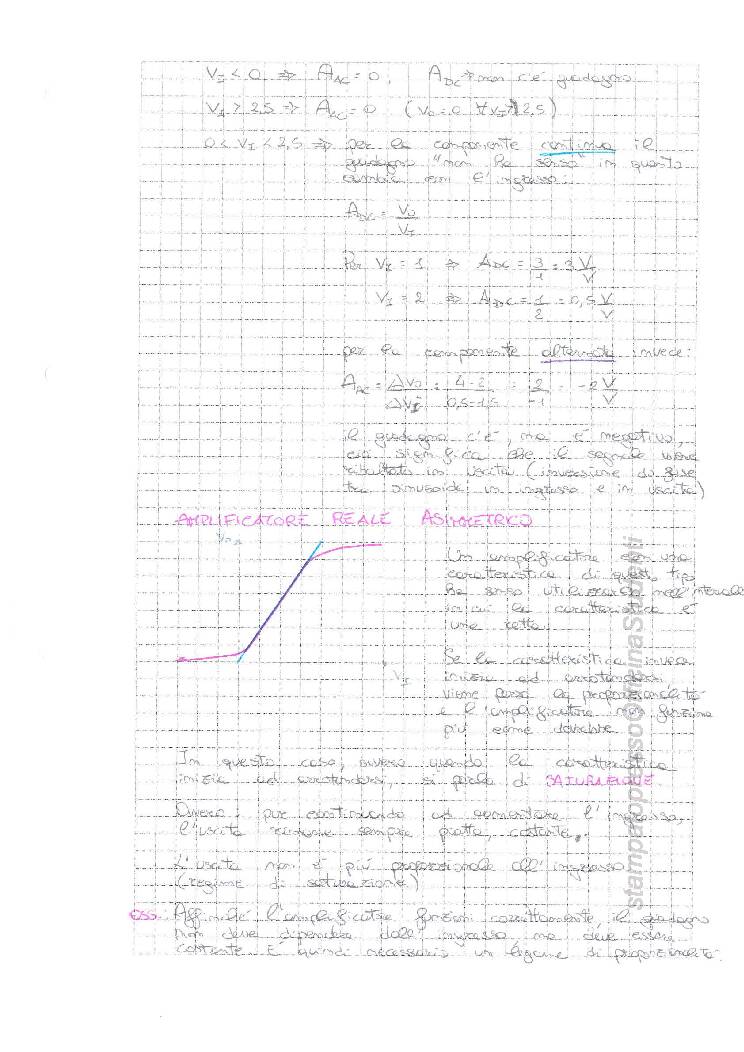 V_I < 0 ⇒ A_AC = 0, A_DC → non c'è guadagno
V_I > 2,5 ⇒ A_AC = 0 (V_0 = 0 ∀V_I > 2,5)
0 < V_I < 2,5 ⇒ per la componente continua il
guadagno "non ha senso" in quanto
cambia con l'ingresso:
A_DC = V_O / V_I
Per V_I = 1 ⇒ A_DC = 3/1 = 3 V/V
V_I = 2 ⇒ A_DC = 1/2 = 0,5 V/V
per la componente alternata invece:
A_AC = ΔV_O / ΔV_I = 4-2 / 0,5-1,5 = 2 / -1 = -2 V/V
il guadagno c'è, ma è negativo,
ciò significa che il segnale viene
ribaltato in uscita (inversione di fase
tra sinusoide in ingresso e in uscita)
AMPLIFICATORE REALE ASIMMETRICO
V_O
Un amplificatore con una
caratteristica di questo tipo
ha senso utilizzarlo nell'intervallo
in cui la caratteristica è
una retta.
Se la caratteristica invece
inizia ad arrotondarsi
viene persa la proporzionalità
e l'amplificatore non funziona
più come dovrebbe
V_I
In questo caso, ovvero quando la caratteristica
inizia ad arrotondarsi, si parla di SATURAZIONE.
Ovvero, pur continuando ad aumentare l'ingresso,
l'uscita rimane sempre piatta, costante.
L'uscita non è più proporzionale all'ingresso
(regime di saturazione)
OSS: Affinché l'amplificatore funzioni correttamente, il guadagno
non deve dipendere dall'ingresso ma deve essere
costante. È quindi necessario un legame di proporzionalità.
stampaoppesso@meinaStudenti